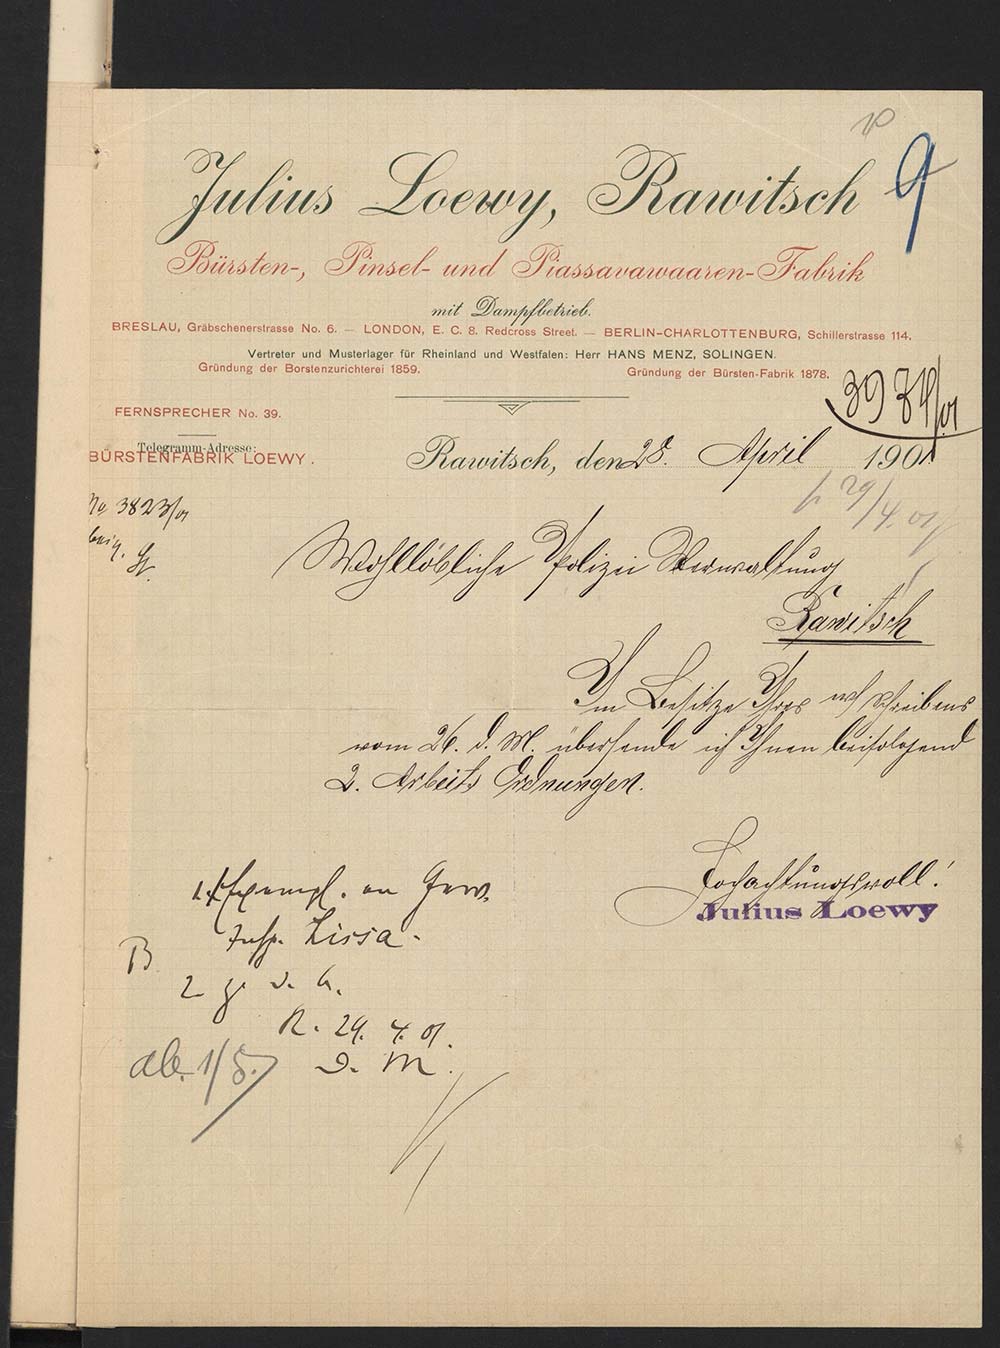 9
Julius Loewy, Rawitsch
Bürsten-, Pinsel- und Piassavawaaren-Fabrik
mit Dampfbetrieb.
BRESLAU, Gräbschenerstrasse No. 6. — LONDON, E. C. 8. Redcross Street. — BERLIN-CHARLOTTENBURG, Schillerstrasse 114.
Vertreter und Musterlager für Rheinland und Westfalen: Herr HANS MENZ, SOLINGEN.
Gründung der Borstenzurichterei 1859. Gründung der Bürsten-Fabrik 1878.
FERNSPRECHER No. 39.
Telegramm-Adresse:
BÜRSTENFABRIK LOEWY.
Rawitsch, den 28. April 1901
29/4. 01
No 3823/01
Wohllöbliche Polizei Verwaltung
Rawitsch
Im Besitze Ihres schreibens
vom 26. d. M. übersende ich Ihnen beifolgend
2. Arbeits Ordnungen.
Hochachtungsvoll!
Julius Loewy
1. Exempl. an Gew.
Insp. Lissa.
2 z. d. A.
R. 29. 4. 01.
D. M.
ab. 1/5.